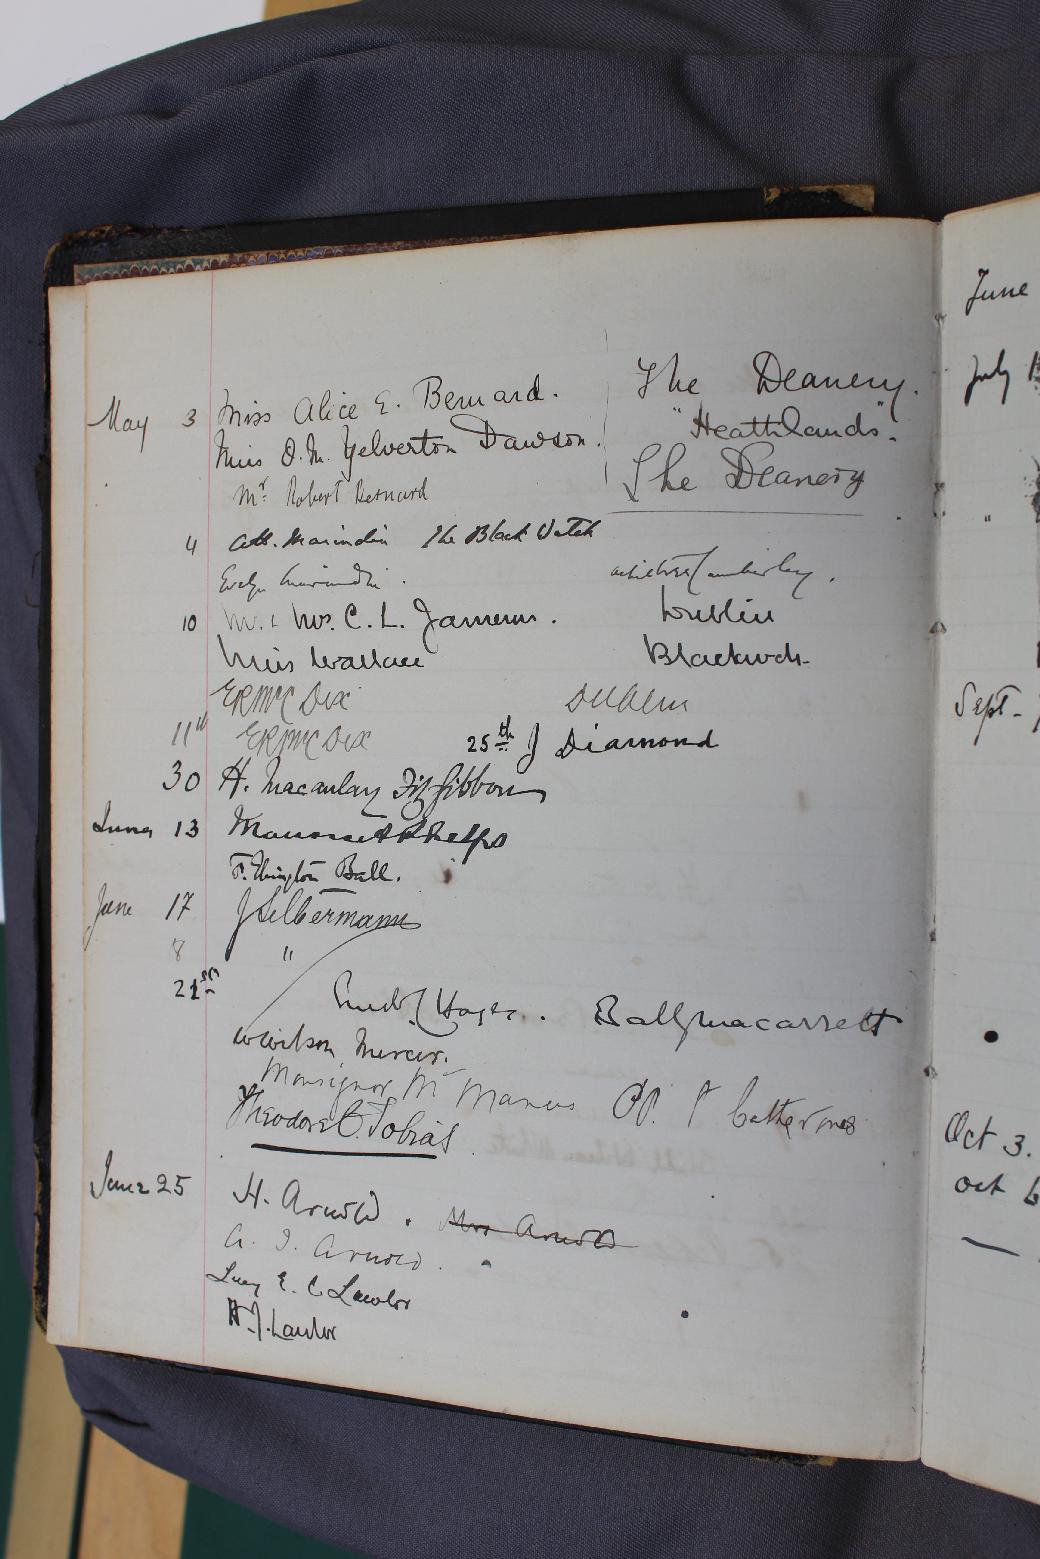 May 3 Miss Alice E. Bernard. The Deanery.
Miss D.M. Yelverton Dawson. "Heathlands".
Mr Robert Bernard The Deanery
4 The Black Watch
Camberley.
10 Mr. & Mrs. C. L. Dublin
Miss Wallace Blackrock
ERMcC Dix Dublin
11th ERMcC Dix 25th J Diamond
30 H. Macaulay FitzGibbon
June 13 Phelps
F. Elrington Ball.
June 17 J Silbermann
8 "
21st
Ballymacarrett
W Wilson Mercer.
Monsignor Mc Manus
Theodore C. Tobias
June 25 H. Arnold. Mrs Arnold
A. I. Arnold.
Lucy E. C. Lawlor
H. J. Lawlor
June
July 1
"
Sept -
Oct 3.
Oct 6